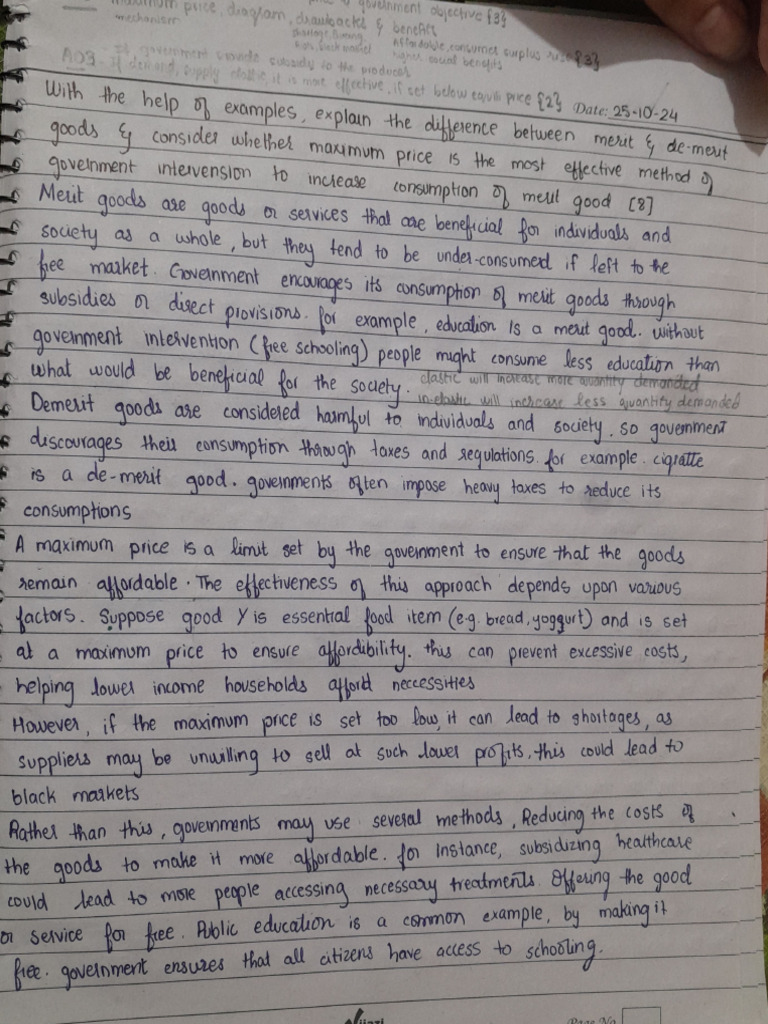 maximum price, diagram, drawbacks & benefits government objective {3}
mechanism shortage, affordable, consumer surplus {3}
higher social benefits
AO3 If government subsidy to the producer
If demand, supply elastic, it is more effective, if set below equili price {2} Date: 25-10-24
With the help of examples, explain the difference between merit & de-merit
goods & consider whether maximum price is the most effective method of
government intervension to increase consumption of merit good [8]
Merit goods are goods or services that are beneficial for individuals and
society as a whole, but they tend to be under-consumed if left to the
free market. Government encourages its consumption of merit goods through
subsidies or direct provisions. for example, education is a merit good. without
government intervention (free schooling) people might consume less education than
what would be beneficial for the society. elastic will increase more quantity demanded
in-elastic will increase less quantity demanded
Demerit goods are considered harmful to individuals and society. so government
discourages their consumption through taxes and regulations. for example. cigratte
is a de-merit good. governments often impose heavy taxes to reduce its
consumptions
A maximum price is a limit set by the government to ensure that the goods
remain affordable. The effectiveness of this approach depends upon various
factors. Suppose good Y is essential food item (e.g. bread, yoggurt) and is set
at a maximum price to ensure affordibility. this can prevent excessive costs,
helping lower income households afford neccessities
However, if the maximum price is set too low, it can lead to shortages, as
suppliers may be unwilling to sell at such lower profits, this could lead to
black markets
Rather than this, governments may use several methods, Reducing the costs of
the goods to make it more affordable. for instance, subsidizing healthcare
could lead to more people accessing necessary treatments. Offering the good
or service for free. Public education is a common example, by making it
free. government ensures that all citizens have access to schooling.
Page No.